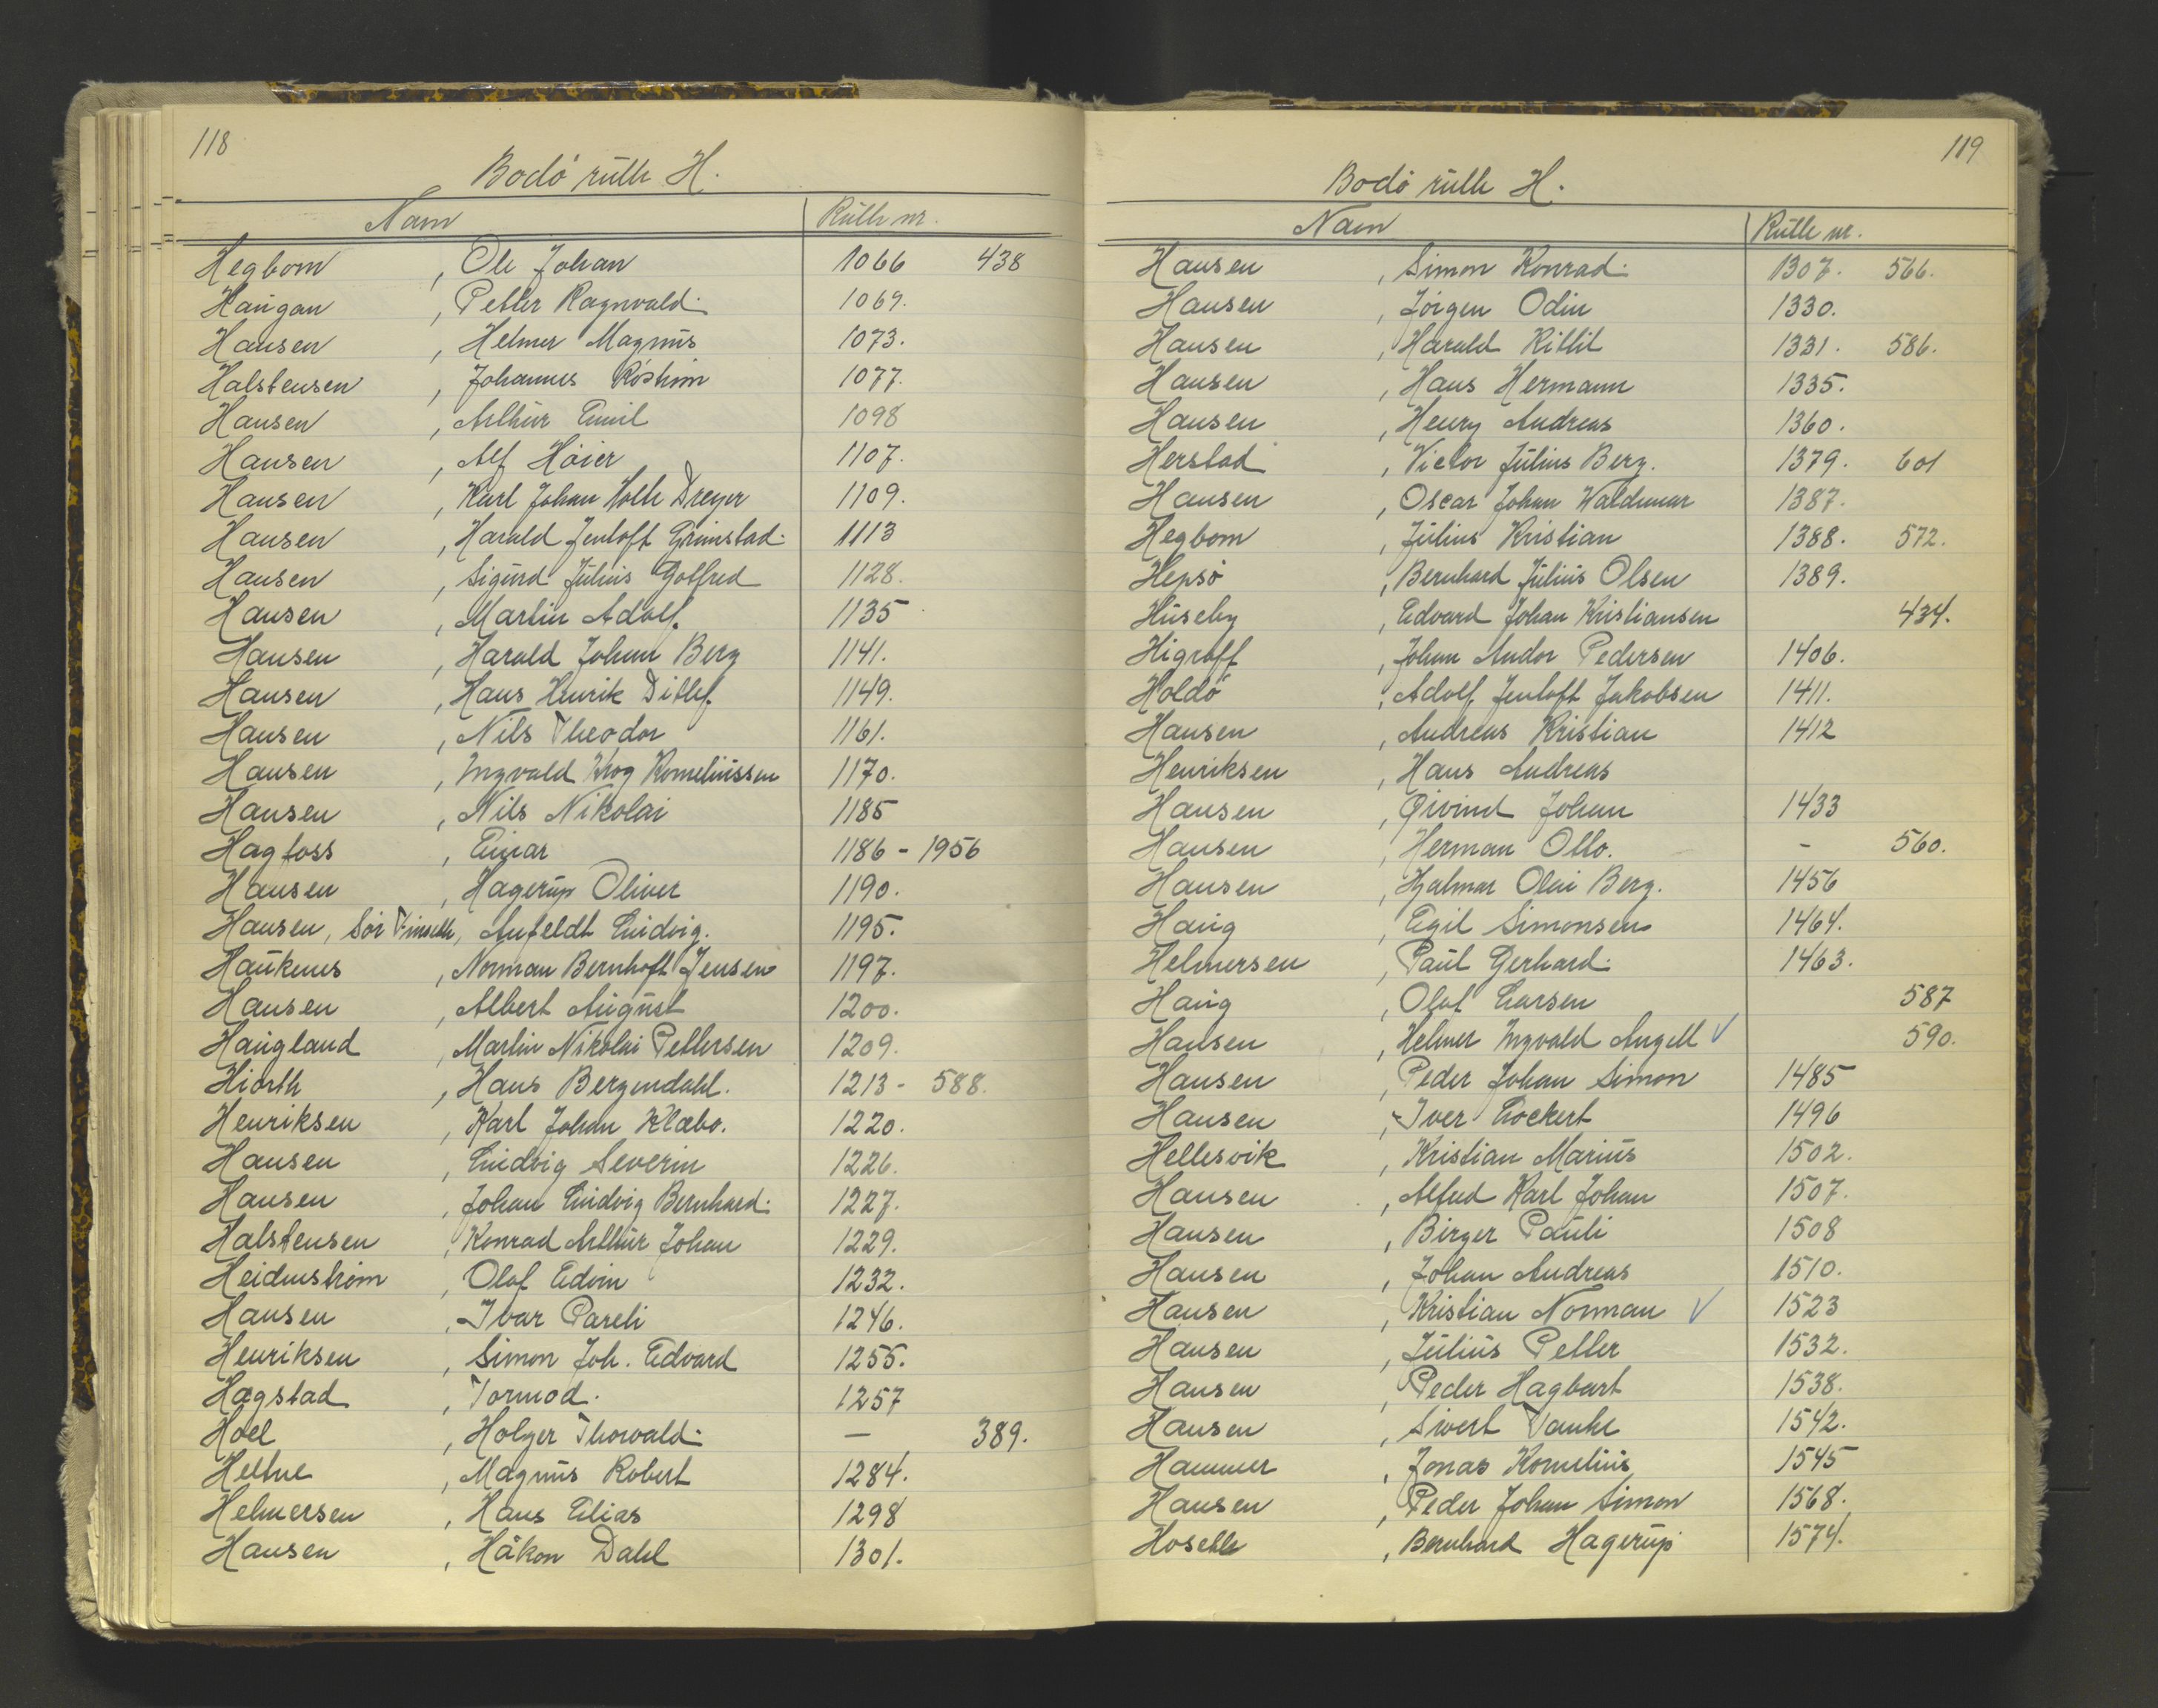 118
Bodö rulle H.
Navn Rulle nr.
Hegbom , Ole Johan 1066 438
Haugan , Petter Ragnvald. 1069.
Hansen , Helmer Magnus 1073.
Halstensen , Johannes 1077.
Hansen , Arthur Emil 1098
Hansen , Alf Höier 1107.
Hansen , Karl Johan Holte Dreyer 1109.
Hansen , Harald Jentoft Grimstad. 1113
Hansen , Sigurd Julius Gotfred 1128.
Hansen , Martin Adolf. 1135
Hansen , Harald Johan Berg 1141.
Hansen , Hans Henrik Ditlef. 1149.
Hansen , Nils Theodor 1161.
Hansen , Ingvald Krog Korneliussen 1170.
Hansen , Nils Nikolai 1185
Hagfoss , Einar 1186 - 1956
Hansen , Hagerup Oliver 1190.
Hansen, Sör , Anfeldt Ludvig. 1195.
Haukenes , Norman Bernhoft Jensen 1197.
Hansen , Albert August 1200.
Haugland , Martin Nikolai Pettersen 1209.
Hiorth , Hans Bergendahl. 1213 - 588.
Henriksen , Karl Johan Klæbo. 1220.
Hansen , Ludvig Severin 1226.
Hansen , Johan Ludvig Bernhard. 1227.
Halstensen , Konrad Arthur Johan 1229.
Heidenström , Olaf Edvin 1232.
Hansen , Ivar Pareli 1246.
Henriksen , Simon Joh. Edvard 1255.
Hagstad , Tormod. 1257
Hoel , Holger Thorvald. — 389.
Heltne , Magnus Robert 1284.
Helmersen , Hans Elias 1298
Hansen , Håkon Dahl 1301.
119
Bodö rulle H.
Navn Rulle nr.
Hansen , Simon Konrad. 1307. 566.
Hansen , Jörgen Odin 1330.
Hansen , Harald Kittil 1331. 586.
Hansen , Hans Hermann 1335.
Hansen , Henry Andreas 1360.
Herstad , Victor Julius Berg. 1379. 601
Hansen , Oscar Johan Waldemar 1387.
Hegbom , Julius Kristian 1388. 572.
Hepsö , Bernhard Julius Olsen 1389.
Huseby , Edvard Johan Kristiansen 434.
Higraff , Johan Andor Pedersen 1406.
Holdö , Adolf Jentoft Jakobsen 1411.
Hansen , Andreas Kristian 1412
Henriksen , Hans Andreas
Hansen , Øivind Johan 1433
Hansen , Herman Otto. - 560.
Hansen , Hjalmar Olai Berg. 1456
Haug , Egil Simonsen 1464.
Helmersen , Paul Gerhard. 1463.
Haug , Olaf Larsen 587
Hansen , Helmer Ingvald Angell ✓ 590.
Hansen , Peder Johan Simon 1485
Hansen , Iver Lockert 1496
Hellesvik , Kristian Marius 1502.
Hansen , Alfred Karl Johan 1507.
Hansen , Birger Pauli 1508
Hansen , Johan Andreas 1510.
Hansen , Kristian Norman ✓ 1523
Hansen , Julius Petter 1532.
Hansen , Peder Hagbart 1538.
Hansen , Sivert Tanke 1542.
Hammer , Jonas Kornelius 1545
Hansen , Peder Johan Simon 1568.
Hoselle , Bernhard Hagerup 1574.